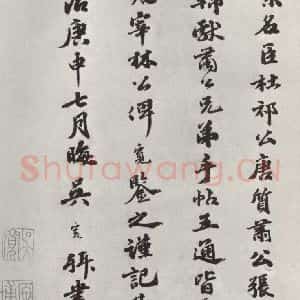 名臣杜祁公唐質肅公張
獻蕭公兄弟手帖五通皆
宰林公俾寬鑒之謹記
治庚申七月晦吳寬拜書
Shufawang.Cn